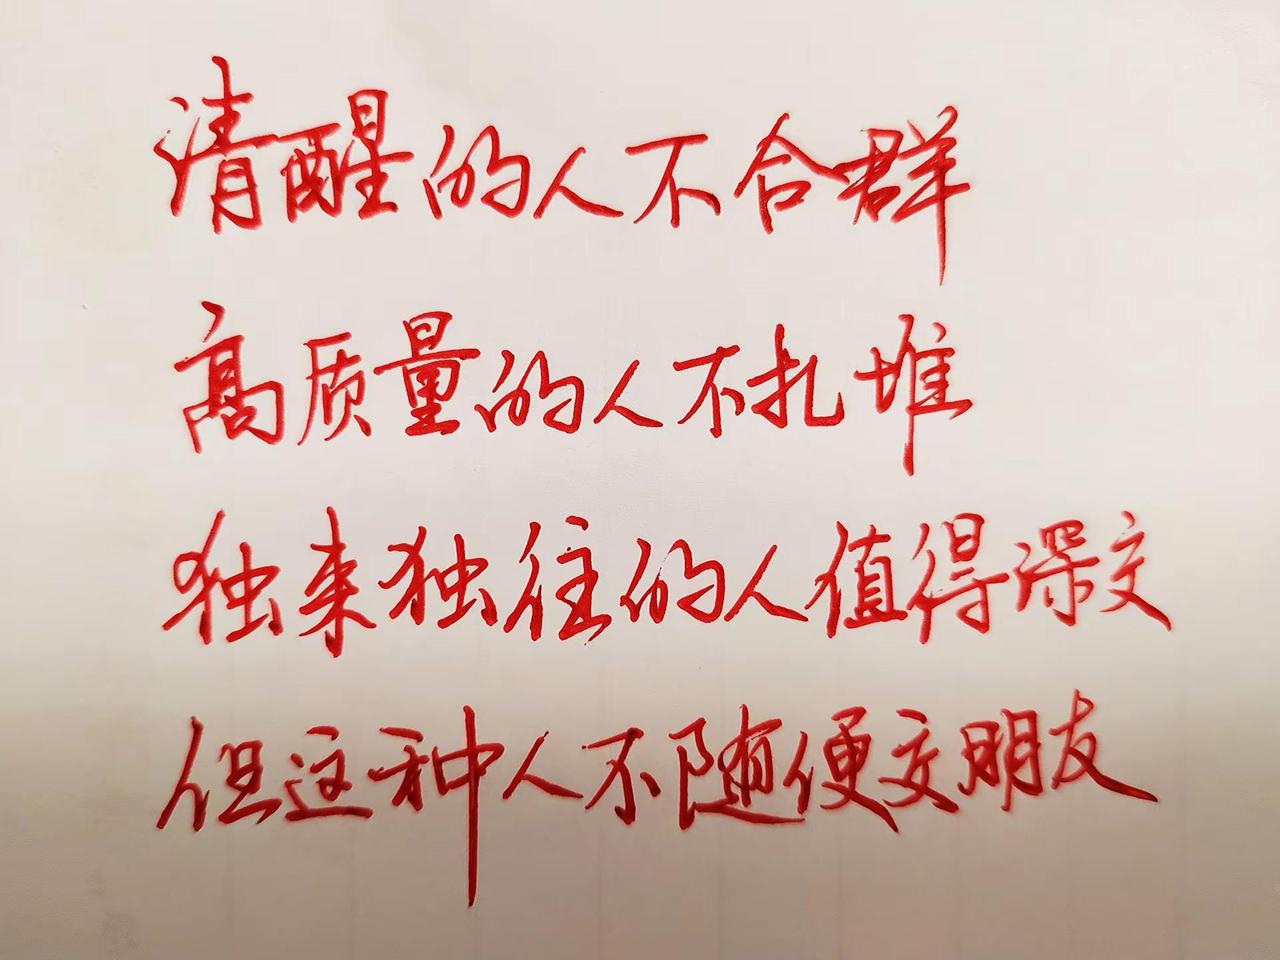 清醒的人不合群
高质量的人不扎堆
独来独往的人值得深交
但这种人不随便交朋友